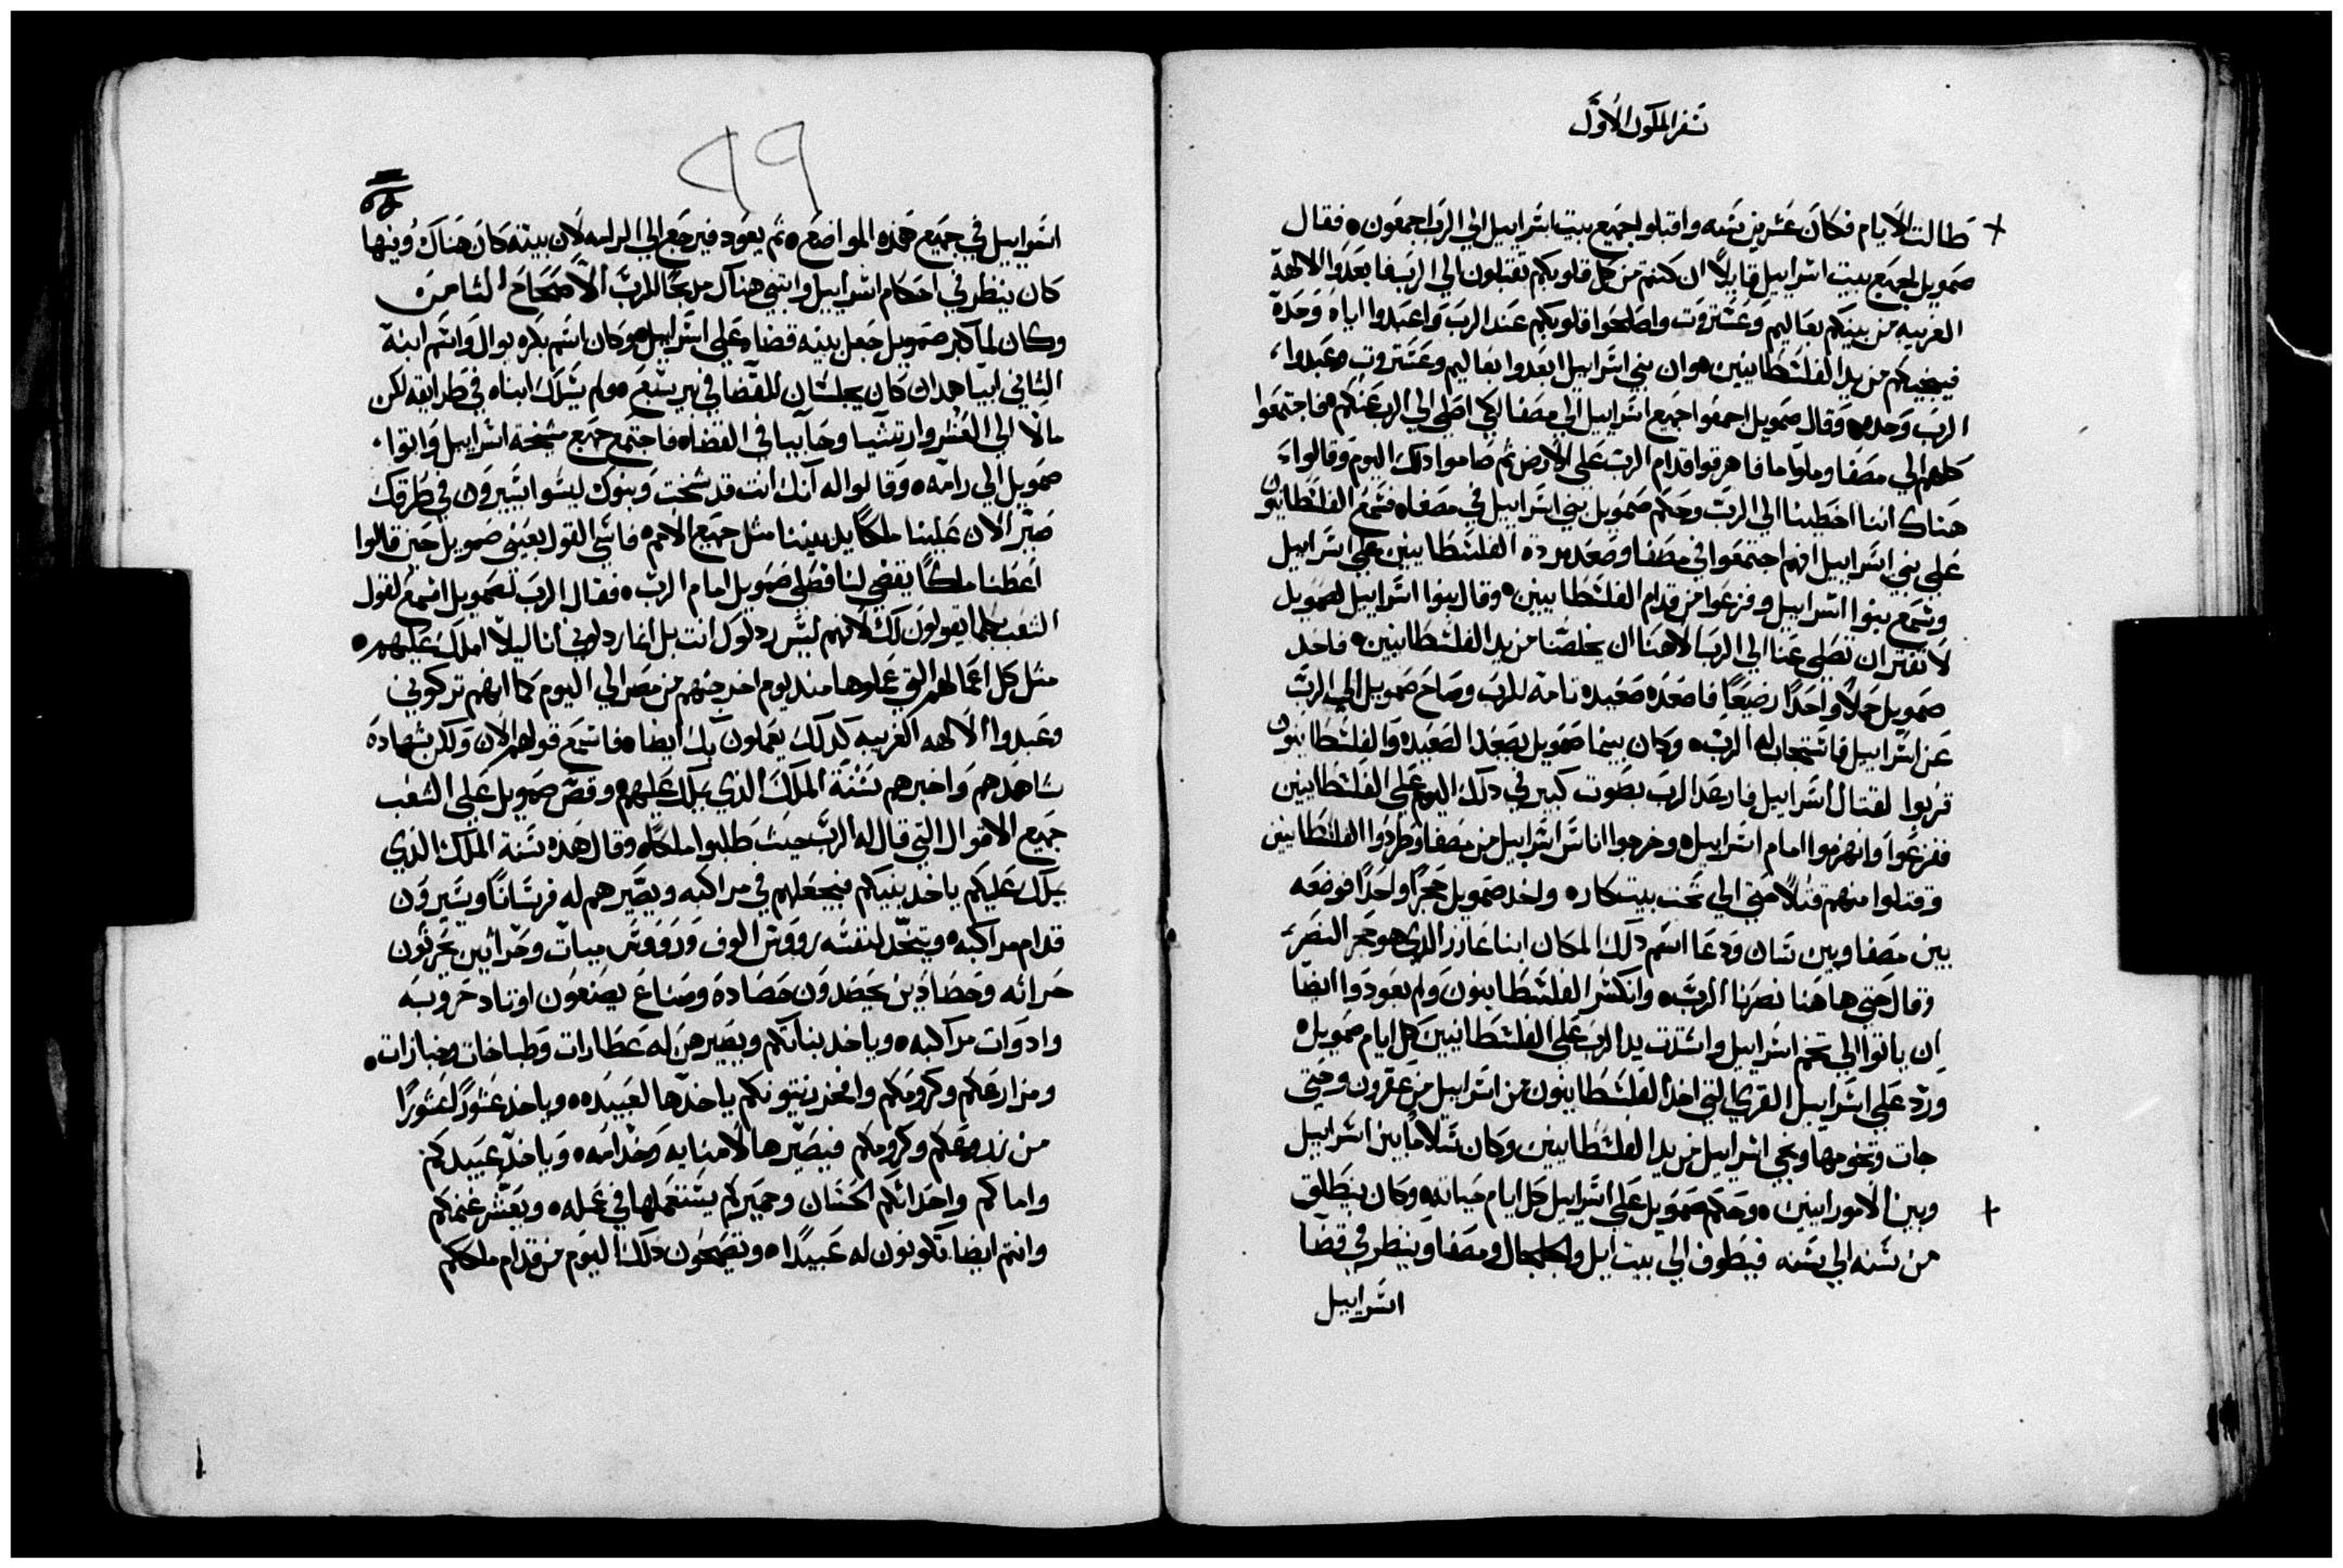 سفر الملوك الاول
طالت الايام فكان عشرين سنه واقبلوا جميع بيت اسراييل الي الرب اجمعون ٥ فقال
صمويل لجميع بيت اسراييل قايلاً ان كنتم من كل قلوبكم تقبلون الي الرب فابعدوا الالهة
الغريبه من بينكم بعاليم وعشتروت واصلحوا قلوبكم عند الرب واعبدوا اياه وحده
فينجيكم من يد الفلسطانيين ٥ وان بني اسراييل ابعدوا بعاليم وعشتروت وعبدوا
الرب وحده ٥ وقال صمويل اجمعوا جميع اسراييل الي مصفا لكي اصلي الي الرب عنكم ٥ فاجتمعوا
كلهم الي مصفا وملوا ما فاهرقوا قدام الرب علي الارض ثم صاموا ذلك اليوم وقالوا
هناك اننا اخطينا الي الرب وحكم صمويل بني اسراييل في مصفاه فسمع الفلسطانيون
علي بني اسراييل انهم اجتمعوا في مصفا وصعد مردة الفلسطانيين علي اسراييل
وسمع بنوا اسراييل وفزعوا من قدام الفلسطانيين ٥ وقال بنوا اسراييل لصمويل
لا تفتر ان تصلي عنا الي الرب الاهنا ان يخلصنا من يد الفلسطانيين ٥ فاخد
صمويل حملاً واحداً رضيعاً فاصعده صعيده تامه للرب وصاح صمويل الي الرب
عن اسراييل فاستجاب له الرب ٥ وكان بينما صمويل يصعد الصعيده والفلسطانيون
قربوا لقتال اسراييل فارعد الرب بصوت كبير في ذلك اليوم علي الفلسطانيين
ففزعوا وانهزموا امام اسراييل ٥ وخرجوا اناس اسراييل من مصفا وطردوا الفلسطانيين
وقتلوا منهم قتلاً حتي الي تحت بيت كاره واخد صمويل حجراً واحداً فوضعه
بين مصفا وبين سان ودعا اسم ذلك المكان ابنا عازر الذي هو حجر النصر
وقال حتي هاهنا نصرنا الرب ٥ وانكسر الفلسطانيون ولم يعودوا ايضاً
ان ياتوا الي تخم اسراييل واشتدت يد الرب علي الفلسطانيين كل ايام صمويل ٥
ورد علي اسراييل القري التي اخد الفلسطانيون من اسراييل من عقرون وحتي
جات وتخومها ونجي اسراييل من يد الفلسطانيين وكان سلاماً بين اسراييل
وبين الامورانيين ٥ وحكم صمويل علي اسراييل كل ايام حياته وكان ينطلق
من سنه الي سنه فيطوف الي بيت ايل والجلجال ومصفا وينظر في قضا
اسراييل
٩٩
اسراييل في جميع هذه المواضع ٥ ثم يعود فيرجع الي الرامه لان بيته كان هناك وفيها
كان ينظر في احكام اسراييل وابتني هناك مدبحاً للرب الاصحاح الثامن
وكان لما كبر صمويل جعل بنيه قضاه علي اسراييل ٥ وكان اسم بكره يوال واسم ابنه
الثاني ابيا هدان كان يجلسان للقضا في بير سبع ٥ ولم يسلك ابناه في طرايقه لكن
مالا الي الغش وارتشيا وحابيا في القضاه فاجتمع جميع شيخة اسراييل واتوا
صمويل الي رامه ٥ وقالوا له انك انت قد شخت وبنوك ليسوا يسيرون في طرقك
صير الان علينا ملكاً يديننا مثل جميع الامم ٥ فاسي القول بعيني صمويل حين قالوا
اعطنا ملكاً يقضي لنا فصلي صمويل امام الرب ٥ فقال الرب لصمويل اسمع لقول
الشعب بكلما يقولون لك لانهم ليس ردلوك انت بل انما ردلوني انا ليلا املك عليهم ٥
مثل كل اعمالهم التي عملوها مند يوم اخرجتهم من مصر الي اليوم كما انهم تركوني
وعبدوا الالهه الغريبه كدلك يعملون بك ايضاه فاسمع قولهم الان ولكن بشهادة
شاهدهم واخبرهم سنة الملك الذي يملك عليهم ٥ وقص صمويل علي الشعب
جميع الاقوال التي قال له الرب حيث طلبوا ملكاه وقال هذه سنة الملك الذي
يملك عليكم ياخد بنيكم فيجعلهم في مراكبه ويصيرهم له فرساناً ويسيرون
قدام مراكبه ٥ ويتخد لنفسه رووس الوف ورووس ميات وحراثين يحرثون
حراثه وحصادين يحصدون حصاده وصناع يصنعون اوتاد حروبه
وادوات مراكبه ٥ وياخد بناتكم ويصيرهن له عطارات وطباخات وخبازات ٥
ومزارعكم وكرومكم وافخر زيتونكم ياخدها لعبيده ٥ وياخد عشوراً عشوراً
من زروعكم وكرومكم فيصيرها لامنايه وخدامه ٥ وياخد عبيدكم
واماكم واحداثكم الحسان وحميركم يستعملها في عمله ٥ ويعشر غنمكم
وانتم ايضا تكونون له عبيداً ٥ وتصيحون ذلك اليوم من قدام ملككم